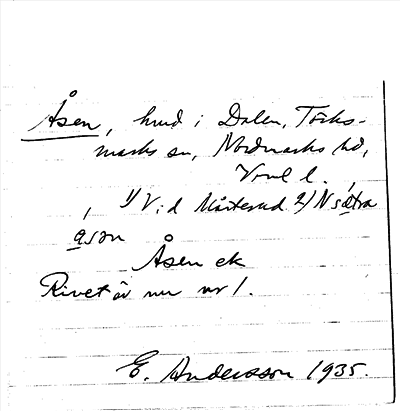 Åsen, hmd i Dalen, Töcks-
marks sn, Nordmarks hd,
Vrml l.
1) Vid Mårterud 2) N sätra
åsan
Åsen ek
Rivet är nu nr 1.
E. Andersson 1935.